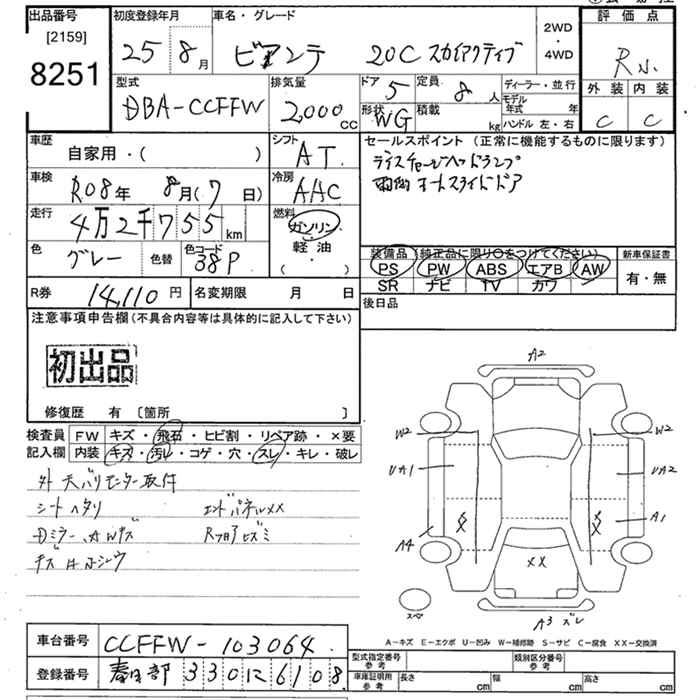 出品番号
[2159]
8251
初度登録年月
25 8月
車名・グレード
ビアンテ 20C スカイアクティブ
2WD
・
4WD
評価点
R
外装 内装
C C
型式
DBA-CCFFW
排気量
2,000cc
ドア 5
定員 8人
形状 WG
積載 kg
ディーラー・並行
モデル年式 年
ハンドル 左・右
車歴
自家用・( )
シフト
AT
セールスポイント (正常に機能するものに限ります)
ディスチャージヘッドランプ
両側オートスライドドア
車検
R08年 8月(7日)
冷房
AAC
走行
4万2千755km
燃料
ガソリン
・
軽油
・
( )
色
グレー
色替
色コード
38P
装備品 (純正品に限り○をつけてください)
PS PW ABS エアB AW
SR ナビ TV カワ
新車保証書
有・無
R券 14,110円
名変期限 月 日
後日品
注意事項申告欄 (不具合内容等は具体的に記入して下さい)
初出品
修復歴 有 〔箇所 〕
検査員記入欄
FW キズ・飛石・ヒビ割・リペア跡・×要
内装 キズ・汚レ・コゲ・穴・スレ・キレ・破レ
外 天バリモニター取付
シートヘタリ エンドパネルXX
Dミラー
A2
W2 W2
UA1 UA2
A1
A4
XX
A3 スレ
スペ
A-キズ E-エクボ U-凹み W-補修跡 S-サビ C-腐食 XX-交換済
車台番号 CCFFW-103064
登録番号 春日部 330 に 6108
型式指定番号 参考
類別区分番号 参考
車庫証明用 参考
長さ cm
幅 cm
高さ cm